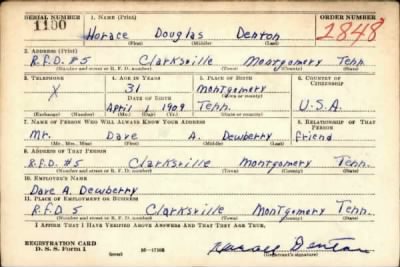 SERIAL NUMBER 1. NAME (Print) ORDER NUMBER
1190 Horace Douglas Denton 2848
(First) (Middle) (Last)
2. ADDRESS (Print)
R.F.D. #5 Clarksville Montgomery Tenn.
(Number and street or R. F. D. number) (Town) (County) (State)
3. TELEPHONE 4. AGE IN YEARS 5. PLACE OF BIRTH 6. COUNTRY OF CITIZENSHIP
X 31 Montgomery
DATE OF BIRTH (Town or county)
April 1 1909 Tenn. U.S.A.
(Exchange) (No.) (Mo.) (Day) (Yr.) (State or country)
7. NAME OF PERSON WHO WILL ALWAYS KNOW YOUR ADDRESS 8. RELATIONSHIP OF THAT PERSON
Mr. Dave A. Dewberry friend
(Mr., Mrs., Miss) (First) (Middle) (Last)
9. ADDRESS OF THAT PERSON
R.F.D. #5 Clarksville Montgomery Tenn.
(Number and street or R. F. D. number) (Town) (County) (State)
10. EMPLOYER'S NAME
Dave A. Dewberry
11. PLACE OF EMPLOYMENT OR BUSINESS
R.F.D 5 Clarksville Montgomery Tenn.
(Number and street or R. F. D. number) (Town) (County) (State)
I AFFIRM THAT I HAVE VERIFIED ABOVE ANSWERS AND THAT THEY ARE TRUE.
REGISTRATION CARD
D. S. S. Form 1 (over) Horace Denton
(Registrant's signature)